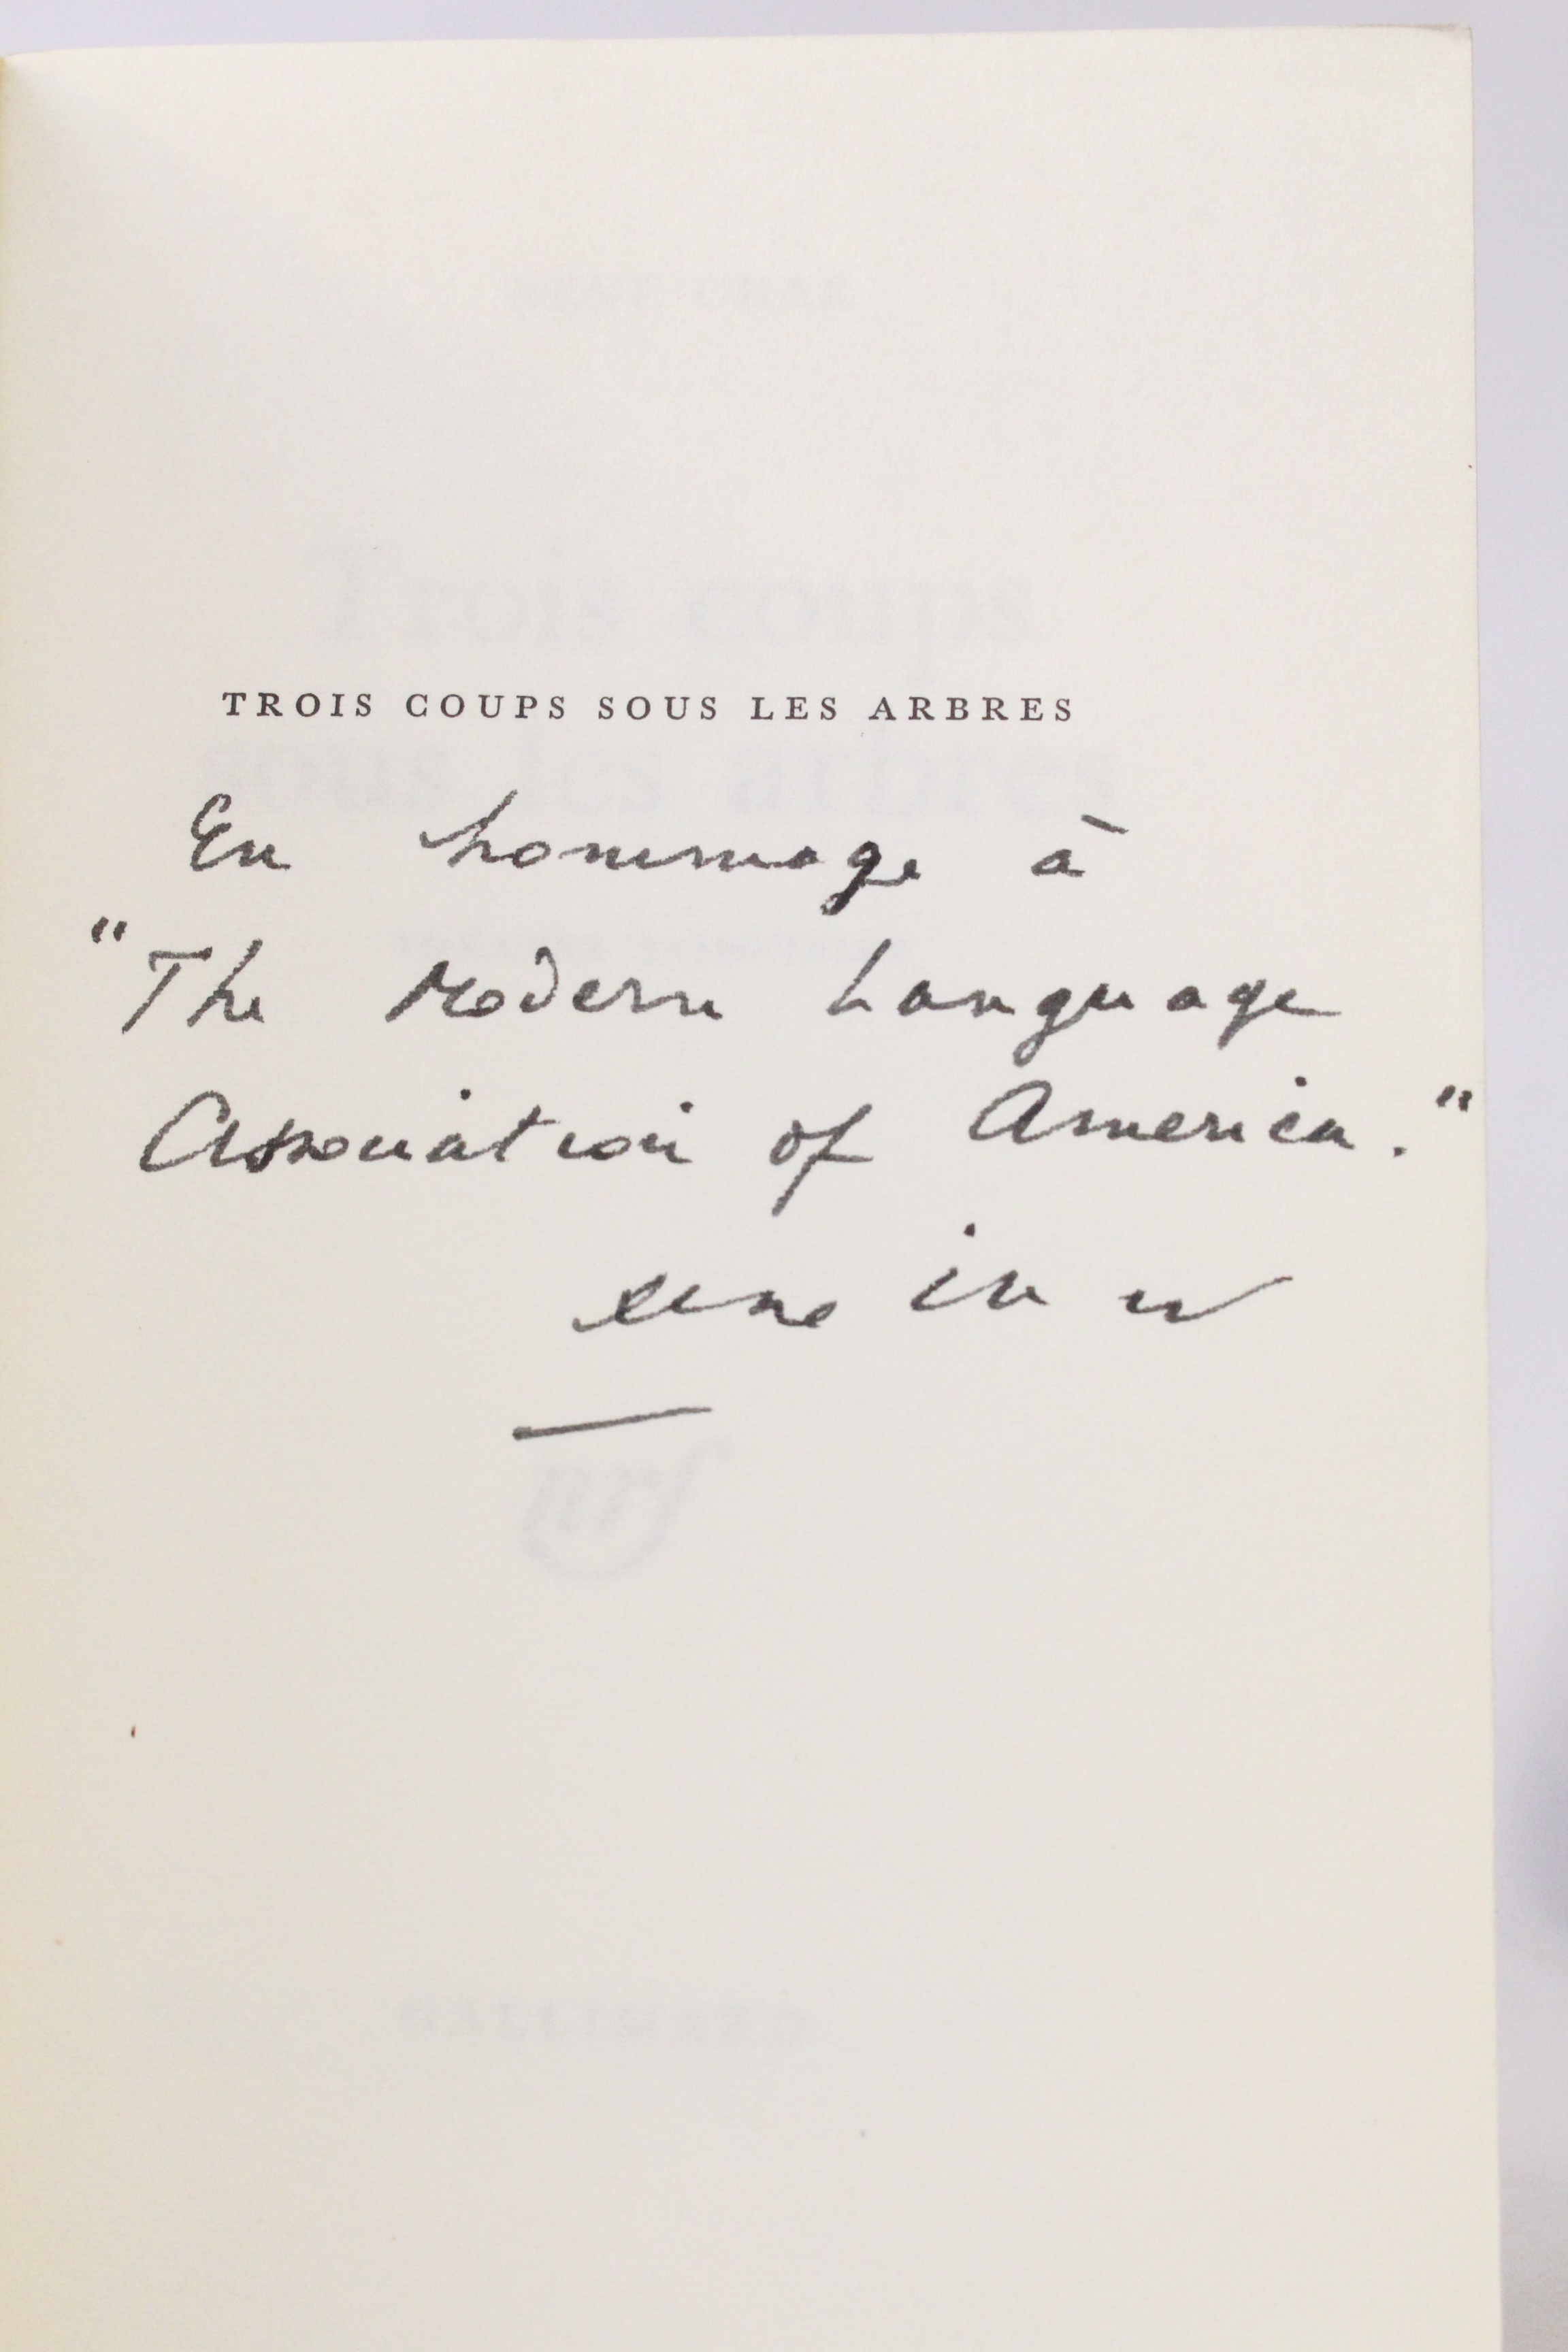 TROIS COUPS SOUS LES ARBRES
En hommage à
"The Modern Language
Association of America."